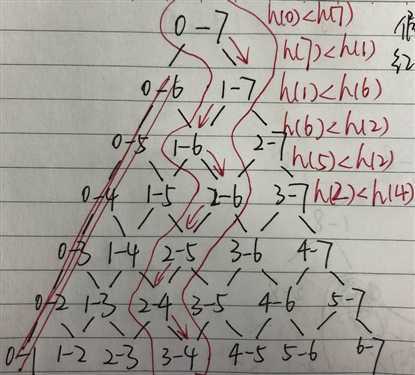 0-7 h(0)<h(7)
h(7)<h(1)
0-6 1-7 h(1)<h(6)
0-5 1-6 2-7 h(6)<h(2)
h(5)<h(2)
0-4 1-5 2-6 3-7 h(2)<h(4)
0-3 1-4 2-5 3-6 4-7
0-2 1-3 2-4 3-5 4-6 5-7
0-1 1-2 2-3 3-4 4-5 5-6 6-7